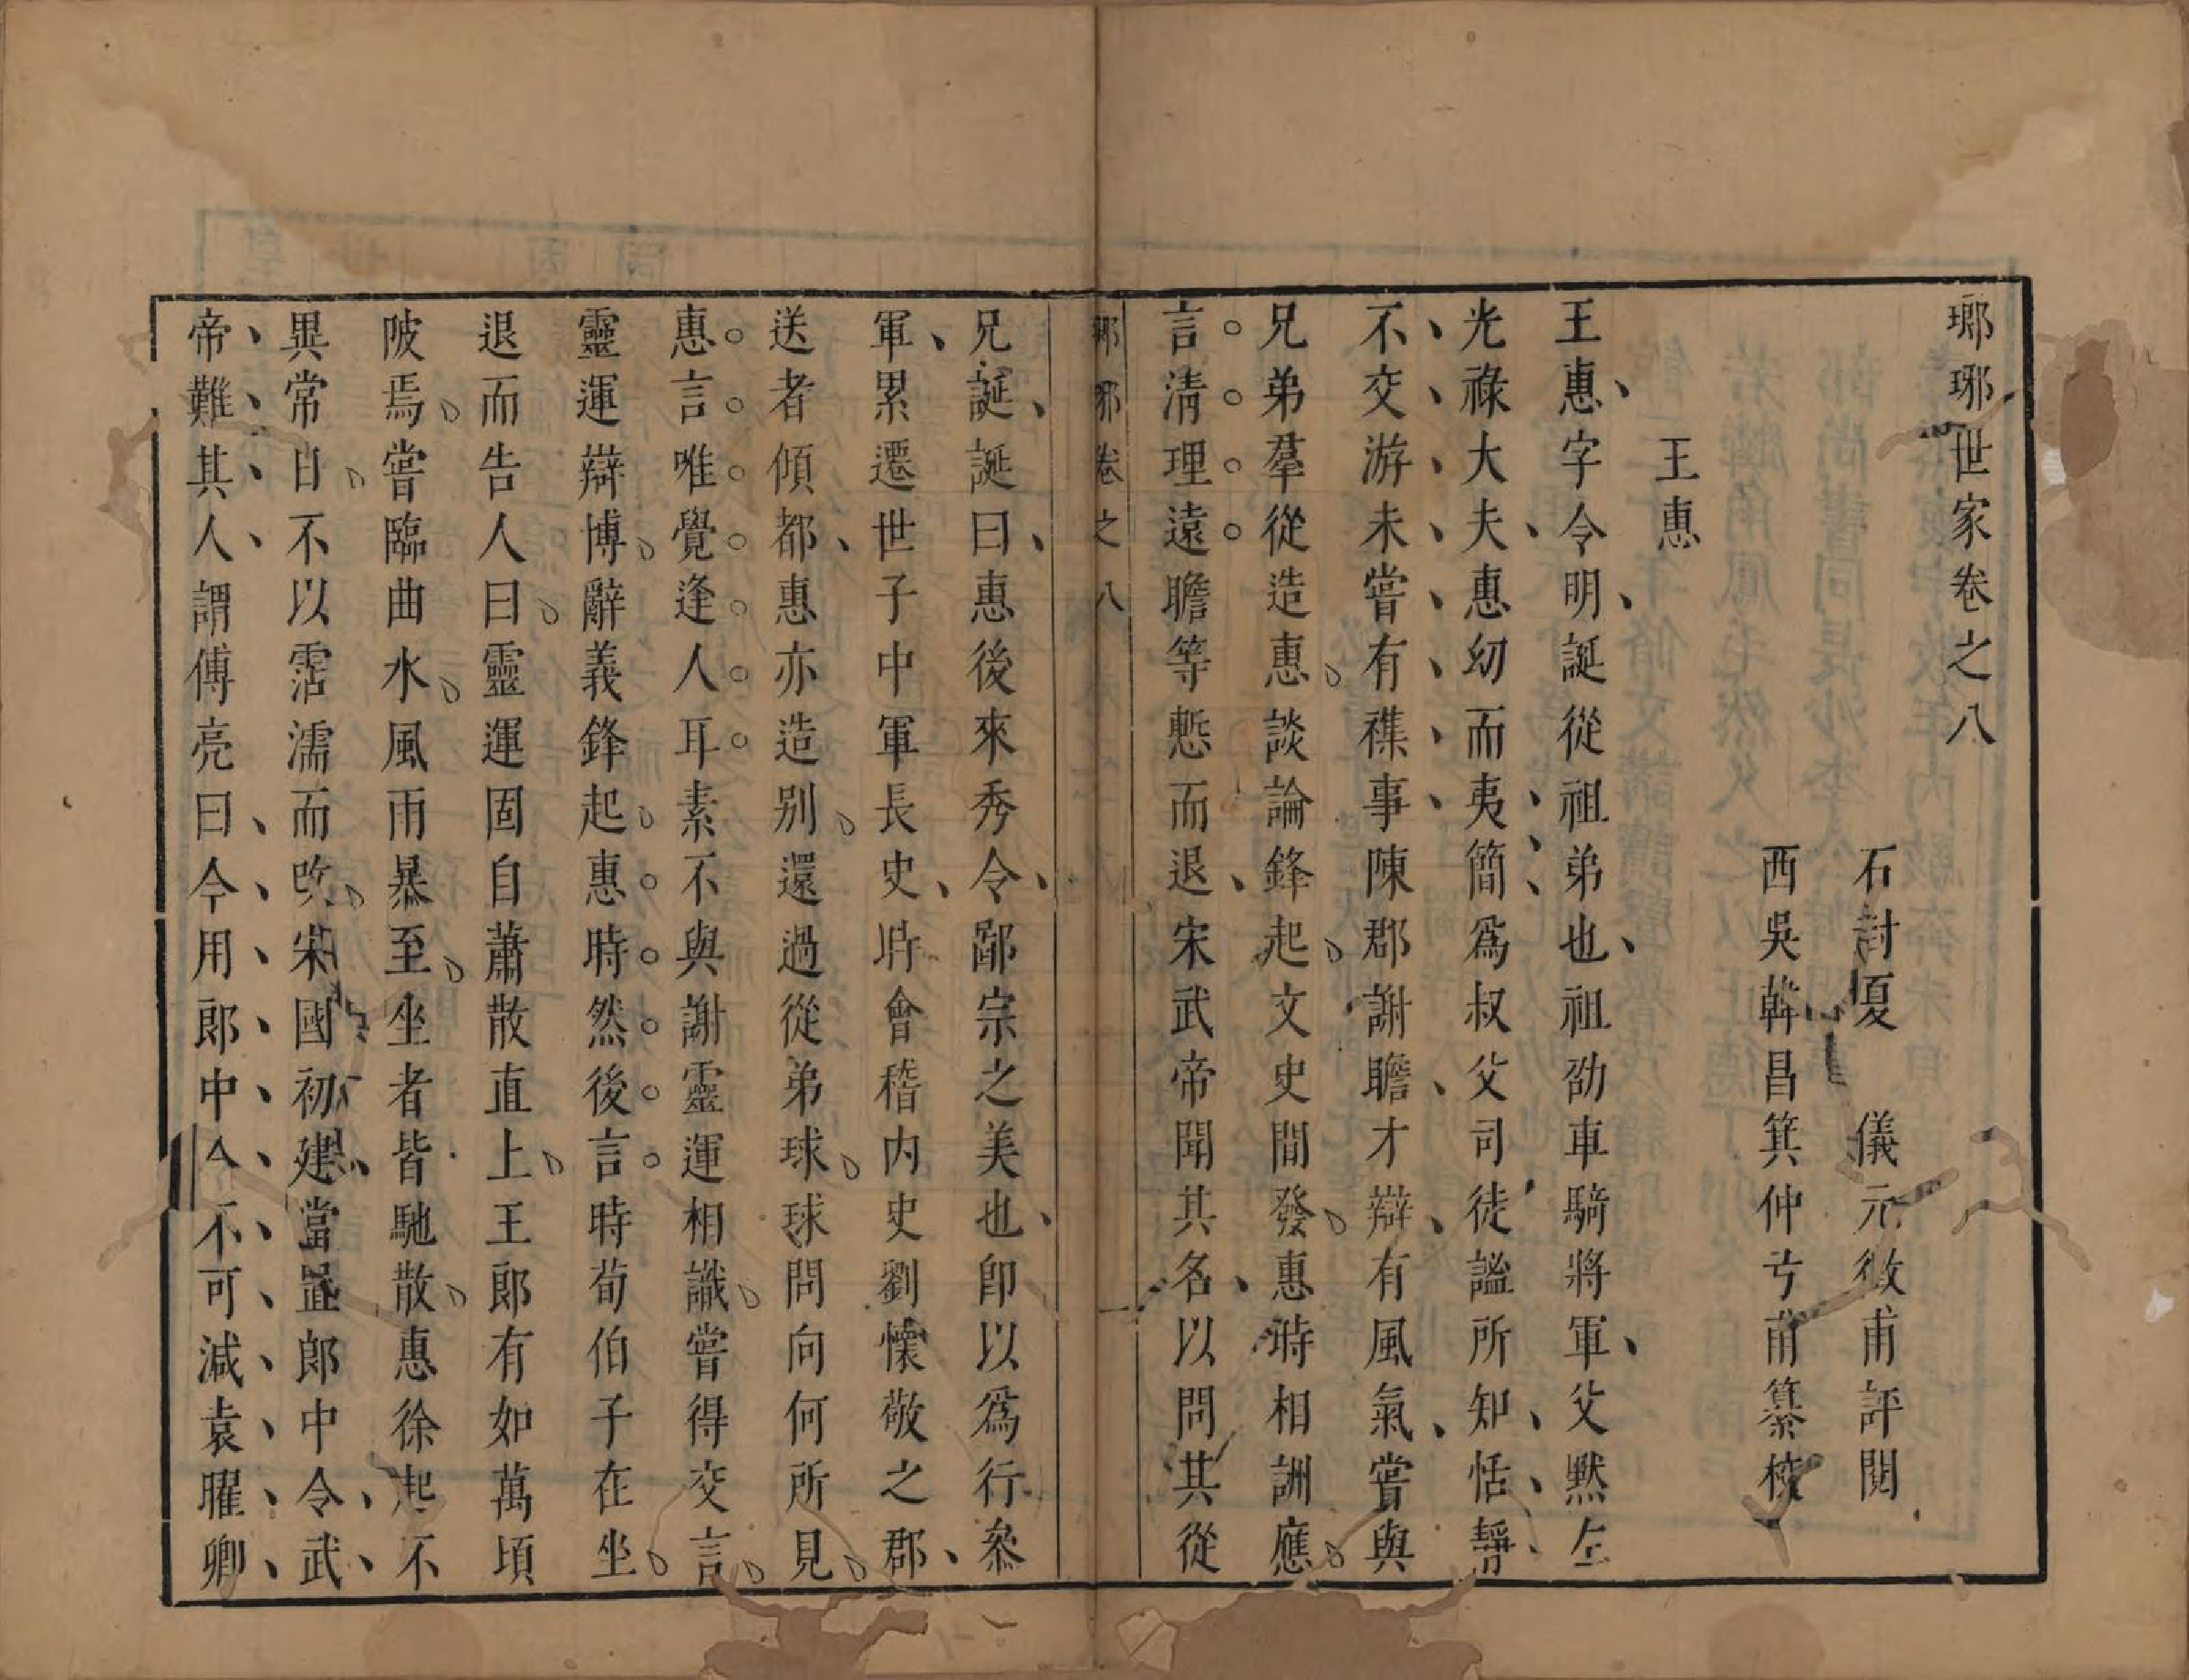 瑯琊世家卷之八
石封夏　儀元徴甫評閱
西吳韓昌箕仲兮甫纂校
王惠
王惠字令明誕從祖弟也祖劭車騎將軍父黙左
光祿大夫惠幼而夷簡爲叔父司徒謐所知恬靜
不交游未嘗有襍事陳郡謝瞻才辯有風氣嘗與
兄弟羣從造惠談論鋒起文史間發惠時相詶應
言清理遠瞻等慙而退宋武帝聞其名以問其從
瑯琊卷之八　一
兄誕誕曰惠後來秀令鄙宗之美也卽以爲行叅
軍累遷世子中軍長史時會稽内史劉懷敬之郡
送者傾都惠亦造别還過從弟球球問向何所見
惠言唯覺逢人耳素不與謝靈運相識嘗得交言
靈運辯博辭義鋒起惠時然後言時荀伯子在坐
退而告人曰靈運固自蕭散直上王郎有如萬頃
陂焉嘗臨曲水風雨暴至坐者皆馳散惠徐起不
異常日不以霑濡而改宋國初建當置郎中令武
帝難其人謂傅亮曰今用郎中令不可減袁曜卿